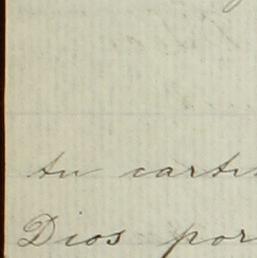 tu carti
Dios por